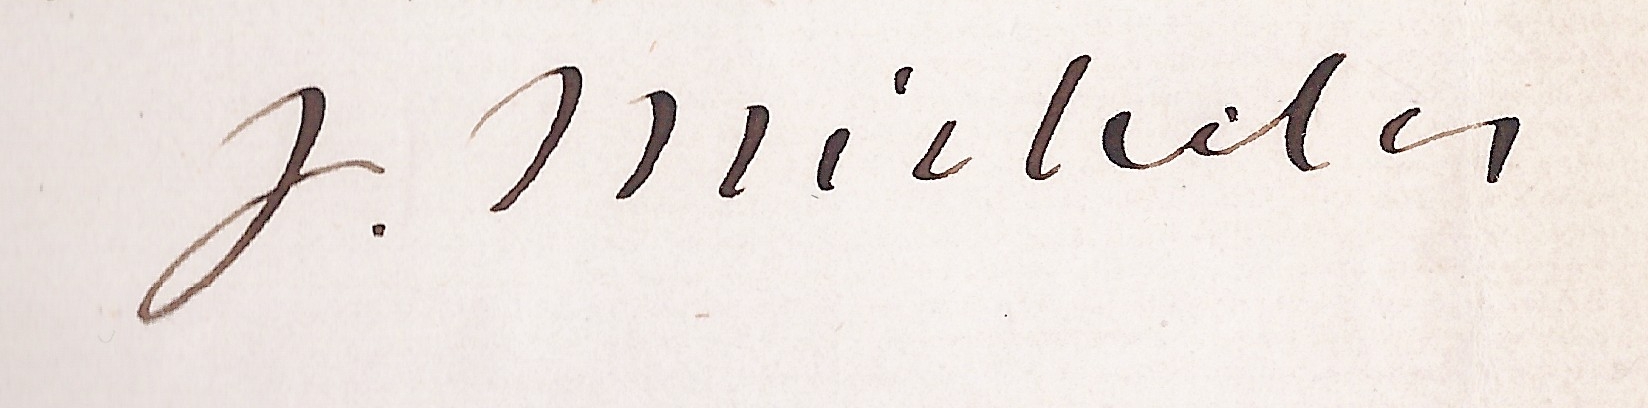 J. Michelet